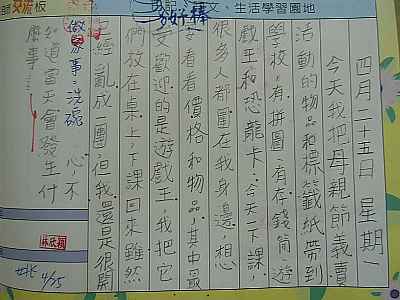 師交流板
日記、作文、生活學習園地
好棒
四月二十五日 星期一
今天我把母親節義賣
活動的物品和標籤紙帶到
學校,有拼圖、有存錢筒、遊
戲王和恐龍卡。今天下課,
很多人都圍在我身邊想
要看看價格和物品,其中最
受歡迎的是遊戲王,我把它
們放在桌上,下課回來雖然
已經亂成一團,但我還是很開
心,不
知道當天會發生什
麼事
做家事:洗碗
4/25